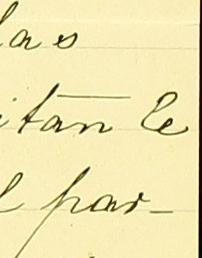 las
itan le
l par-